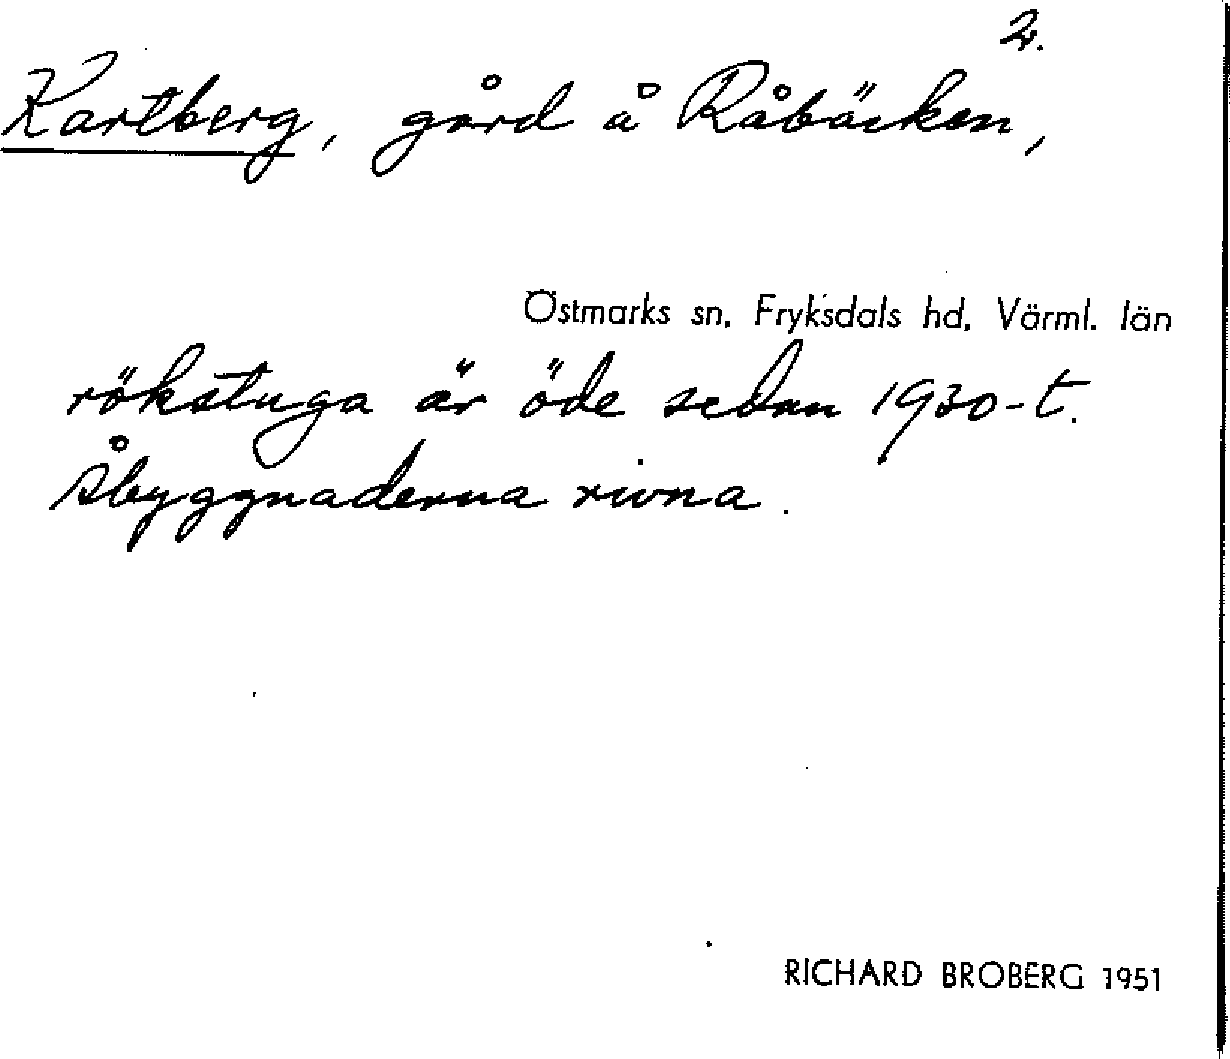 2.
Kartberg, gård å Råbäcken,
Östmarks sn. Fryksdals hd. Värml. län
rökstuga är öde sedan 1930-t.
Åbyggnaderna rivna.
RICHARD BROBERG 1951